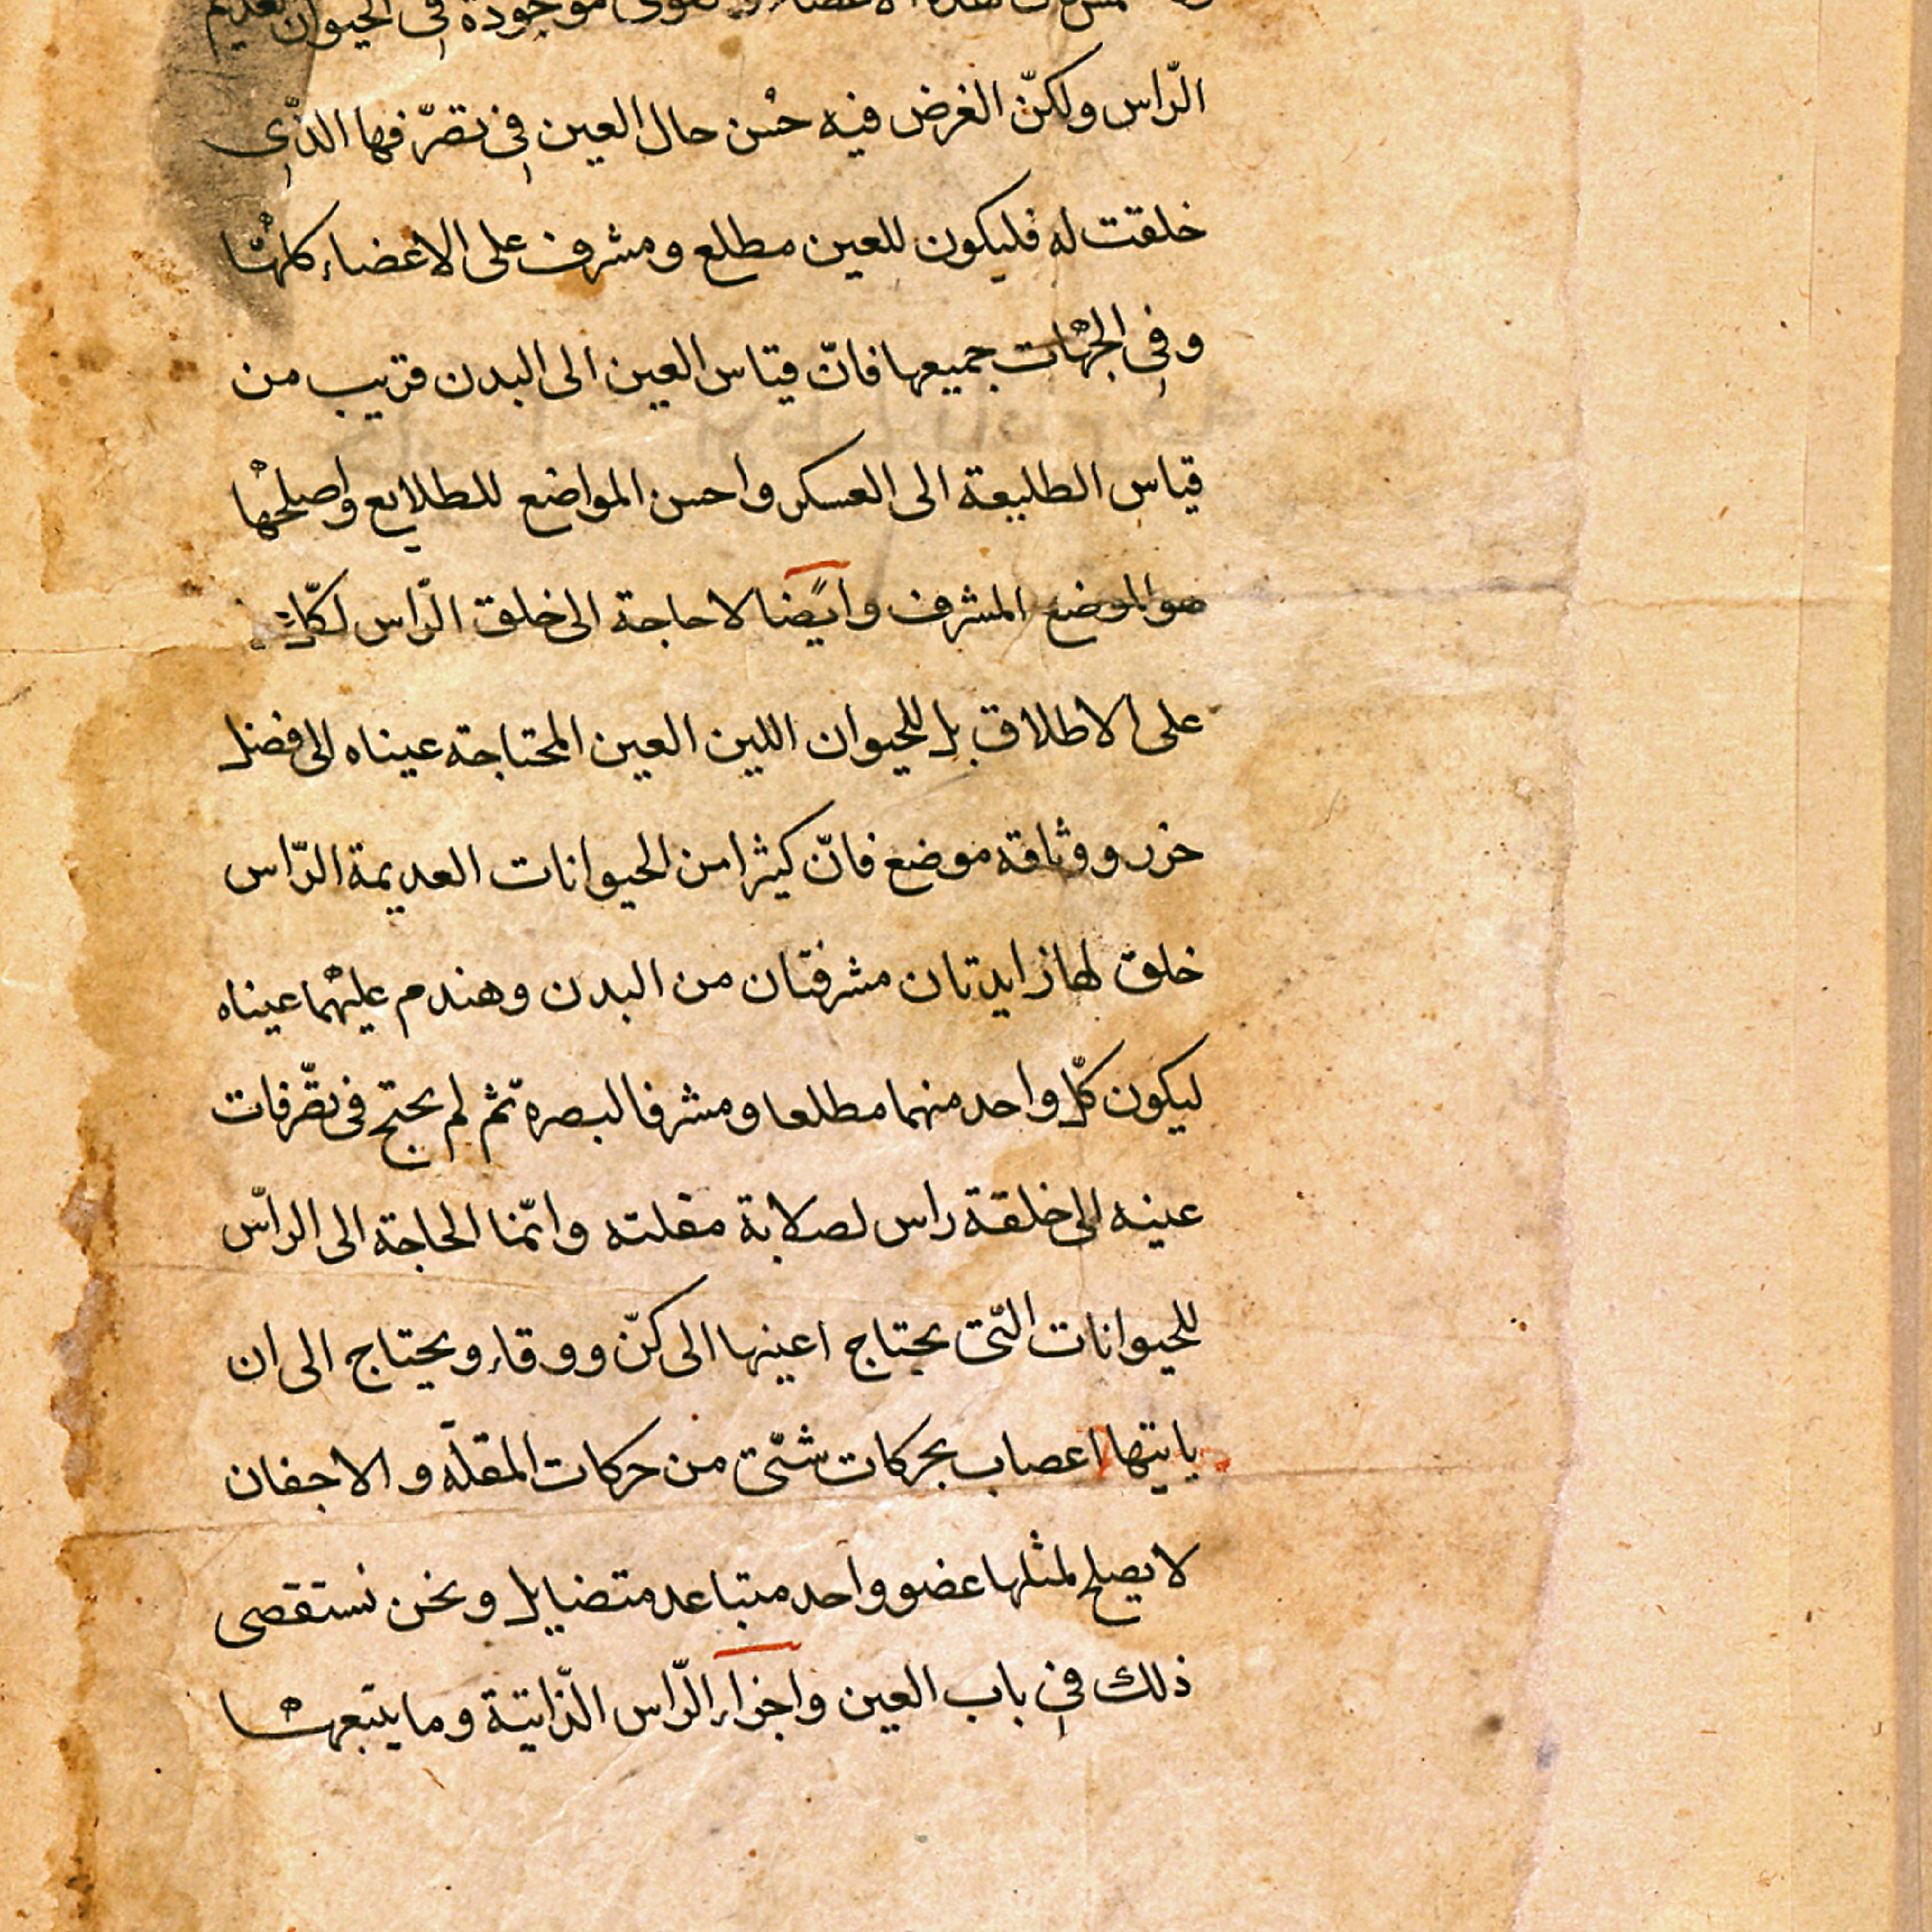 هذه الاعضاء والقوى موجودة فى الحيوان العديم
الرّاس ولكنّ الغرض فيه حُسن حال العين فى تصرّفها الذّى
خلقت له فليكون للعين مطلع ومشرف على الاعضاء كلها
وفى الجهات جميعها فانّ قياس العين الى البدن قريب من
قياس الطليعة الى العسكر واحسن المواضع للطلايع واصلحها
هو الموضع المشرف وايضًا لا حاجة الى خلق الرّاس لكلّ
على الاطلاق بل للحيوان اللين العين المحتاجة عيناه الى فضل
حرز ووثاقة موضع فانّ كثيرا من الحيوانات العديمة الرّاس
خلق لها زايدتان مشرفتان من البدن وهندم عليهما عيناه
ليكون كلّ واحد منهما مطلعا ومشرفا لبصره ثمّ لم يحتج فى تصّرفات
عينه الى خلقة راس لصلابة مقلته وانّما الحاجة الى الراّس
للحيوانات التّى يحتاج اعينها الى كنّ ووقاء ويحتاج الى ان
ياتيها اعصاب بحركات شتّى من حركات المقلّه والاجفان
لا يصلح لمثلها عضو واحد متباعد متضايل ونحن نستقصى
ذلك فى باب العين واجزاء الرّاس الذّاتيّة وما يتبعها